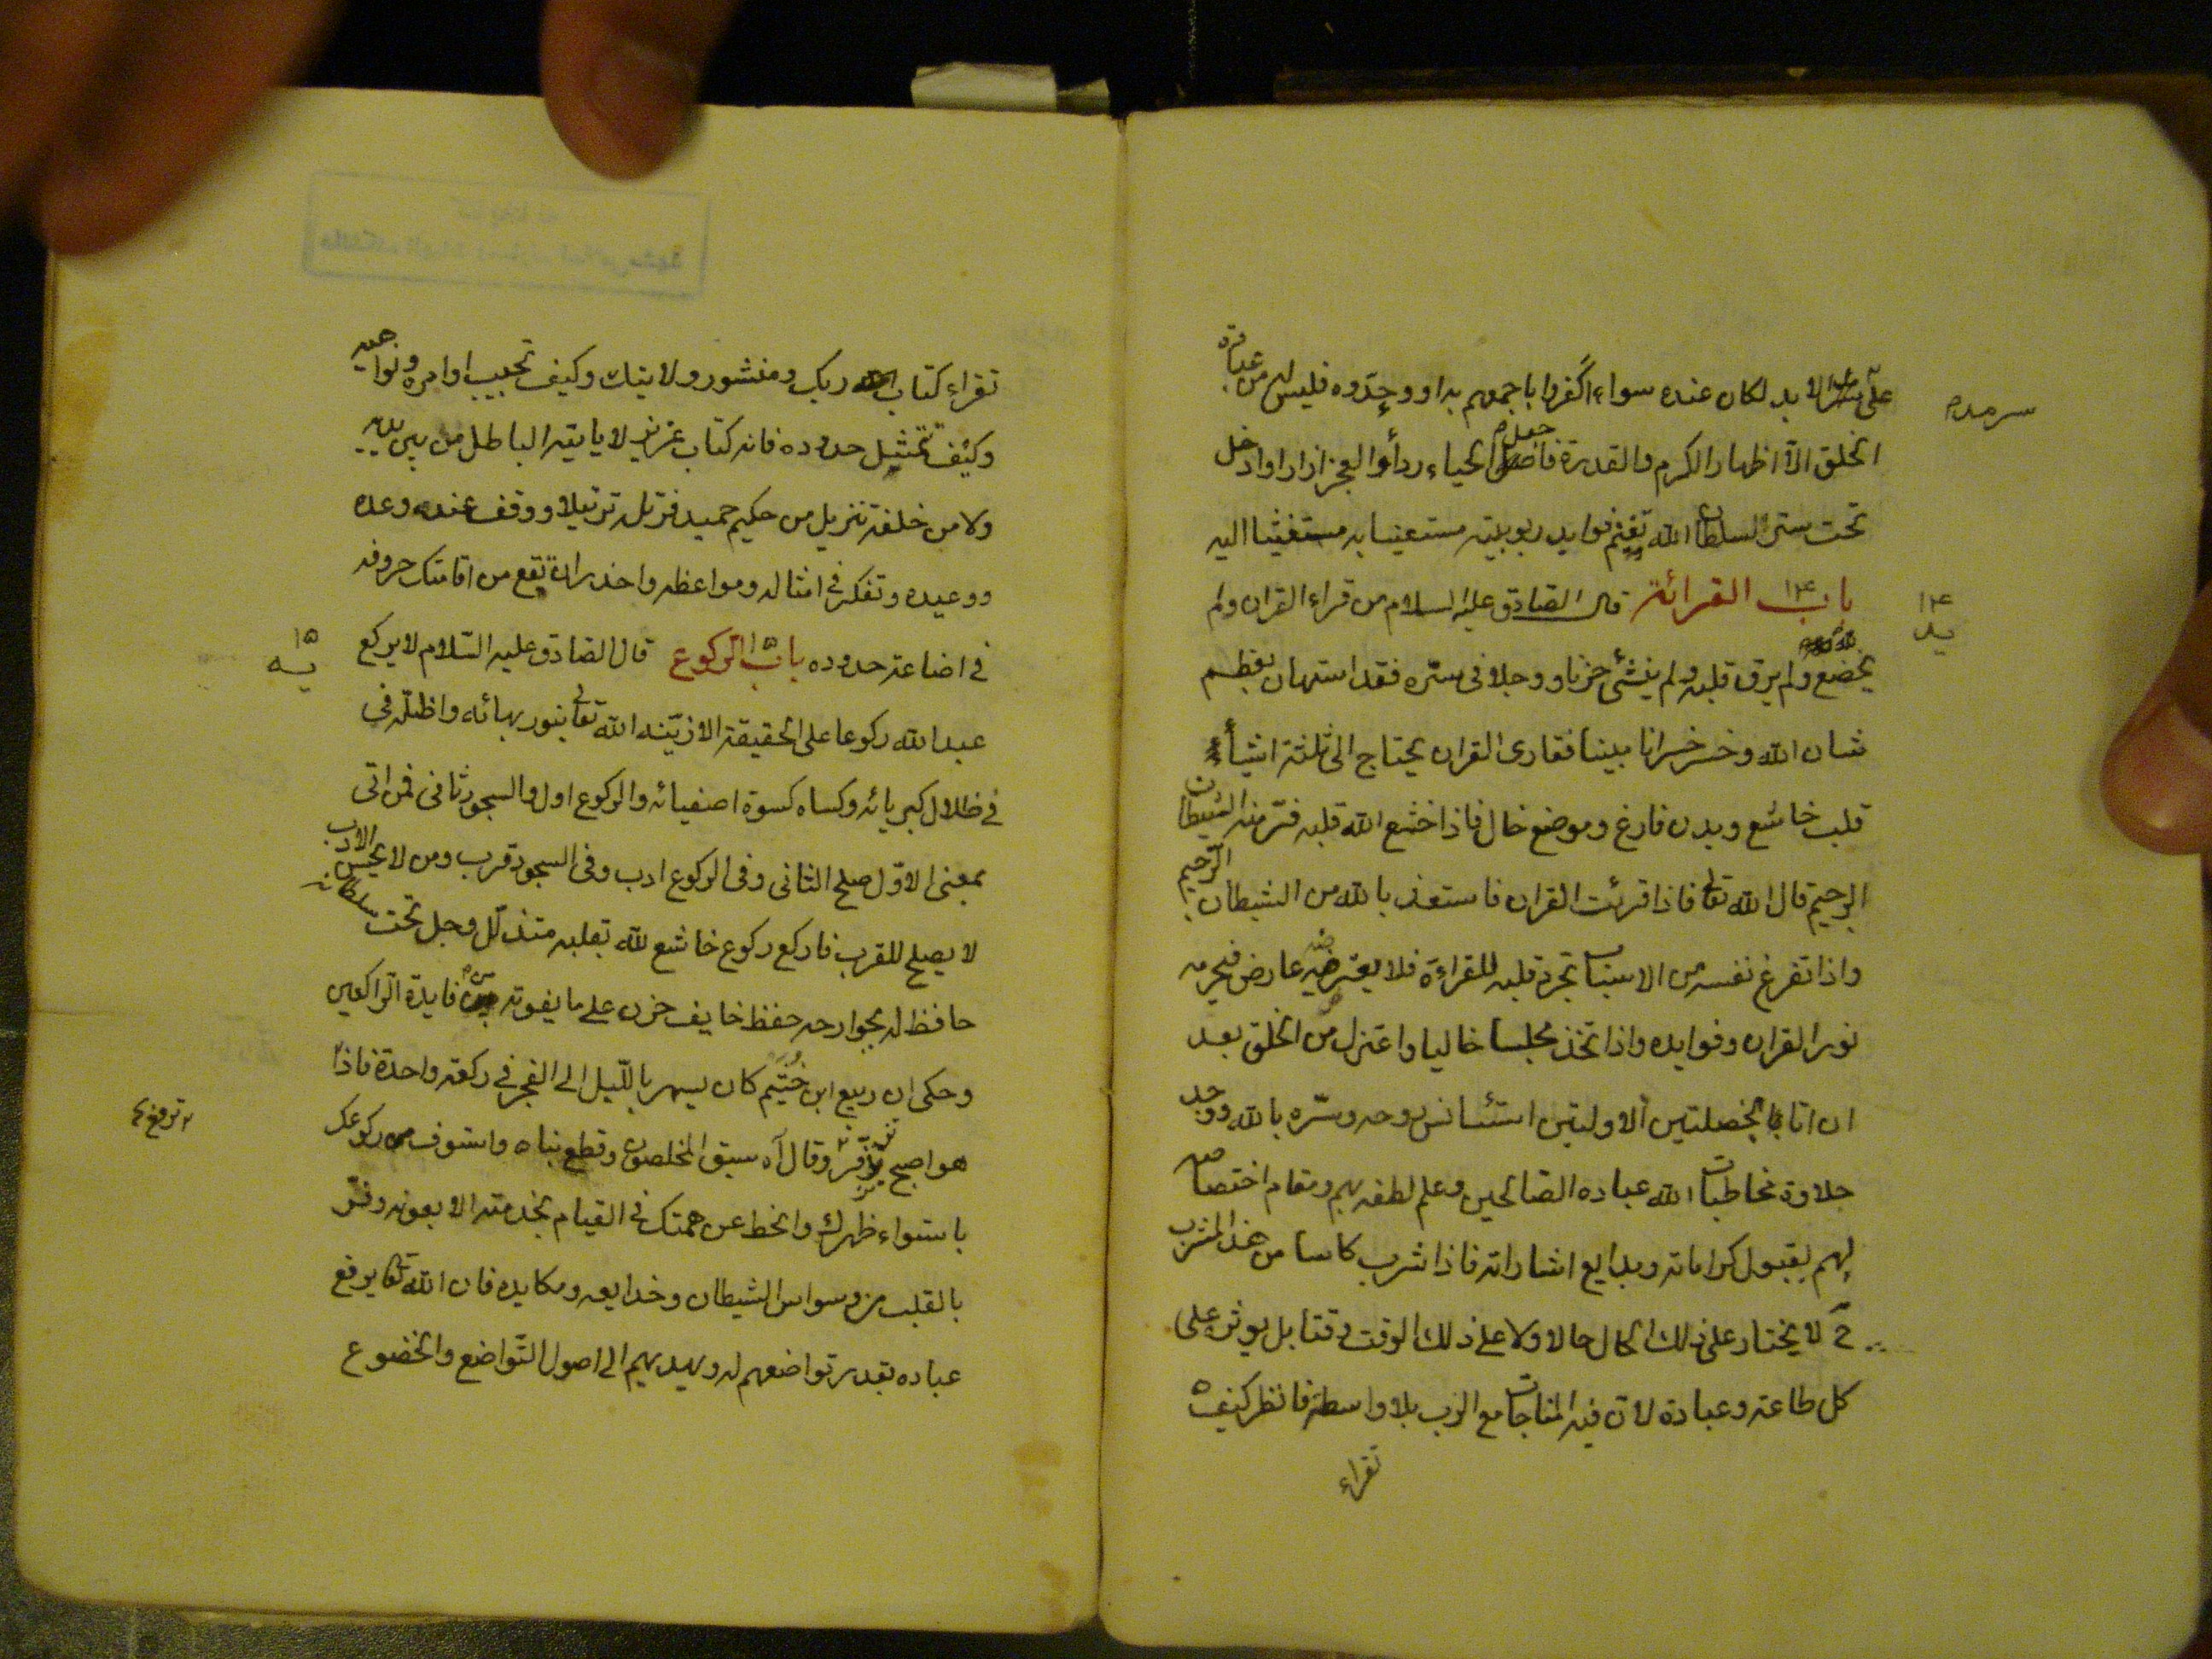 على سرمد الابد لكان عنده سواء اكفروا باجمعهم به او وحدوه فليس له من عبادة
سرمد
الخلق الا اظهار الكرم والقدرة فاجعل الحياء رداء والعجز ازارا وادخل
تحت ستر سلطان الله تغنم فوايد ربوبيته مستعينا به مستغيثا اليه
باب ١٤ القرائة قال الصادق عليه السلام من قراء القران ولم
١٤
يد
يخضع لله ولم يرق قلبه ولم ينشئ حزنا ووجلا في سره فقد استهان بعظم
شان الله وخسر خسرانا مبينا فقارى القران يحتاج الى ثلثة اشياء
قلب خاشع وبدن فارغ وموضع خال فاذا خشع لله قلبه فر منه الشيطان
الرجيم قال الله تعا فاذا قرئت القران فاستعذ بالله من الشيطان الرجيم
واذا تفرغ نفسه من الاسباب تجرد قلبه للقراءة فلا يعترضه عارض فيحرمه
نور القران وفوايده واذا اتخذ مجلسا خاليا واعتزل من الخلق بعد
ان اتا بالخصلتين الاولتين استئانس روحه وسره بالله ووجد
حلاوة مخاطبات الله عباده الصالحين وعلم لطفه بهم ومقام اختصاصه
لهم بقبول كراماته وبدايع اشاراته فاذا شرب كاسا من هذا المشرب
ح لا يختار على ذلك الحال حالا ولا على ذلك الوقت وقتا بل يوثره على
كل طاعة وعبادة لان فيه المناجات مع الرب بلا واسطة فانظر كيف
تقراء
تقراء كتاب ربك ومنشور ولايتك وكيف تجيب اوامره ونواهيه
وكيف تمتثل حدوده فانه كتاب عزيز لا ياتيه الباطل من بين يديه
ولا من خلفه تنزيل من حكيم حميد فرتله ترتيلا ووقف عند وعده
ووعيده وتفكر في امثاله ومواعظه واحذر ان تقع من اقامتك حروفه
في اضاعة حدوده باب ١٥ الركوع قال الصادق عليه السلام لا يركع
١٥
يه
عبد الله ركوعا على الحقيقة الا زينه الله تعالى بنور بهائه واظله في
في ظلال كبريائه وكساه كسوة اصفيائه والركوع اول والسجود ثانى فمن اتى
بمعنى الاول صلح الثانى وفى الركوع ادب وفى السجود قرب ومن لا يحسن الادب
لا يصلح للقرب فاركع ركوع خاشع لله بقلبه متذلل وجل تحت سلطانه
حافظ له بجوارحه حفظ خايف حزن على ما يفوته من فايدة الراكعين
وحكى ان ربيع ابن خثيم كان يسهر بالليل الى الفجر في ركعة واحدة فاذا
هو اصبح تزفر وقال آه سبق المخلصون وقطع بناه واستوف ركوعك
باستواء ظهرك وانحط عن همتك في القيام بخدمته الا بعونه وفر
بالقلب من وسواس الشيطان وخدايعه ومكايده فان الله تعالى يرفع
عباده بقدر تواضعهم له ويهديهم الى اصول التواضع والخضوع